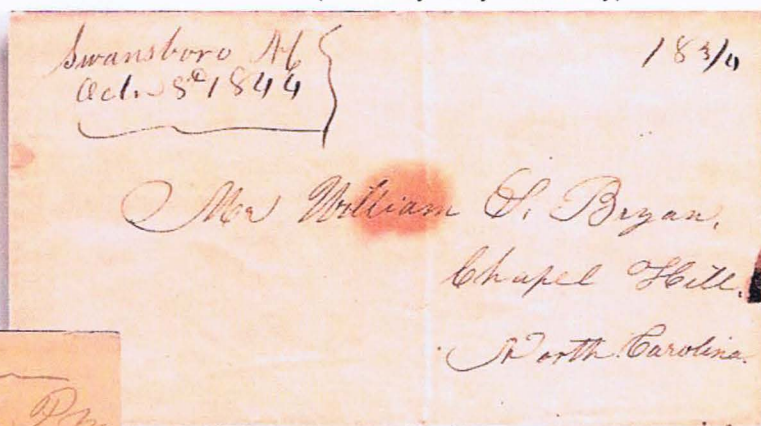 Swansboro NC
Oct. 3d 1844
18 3/4
Mr William S. Bryan,
Chapel Hill,
North Carolina.
P.M